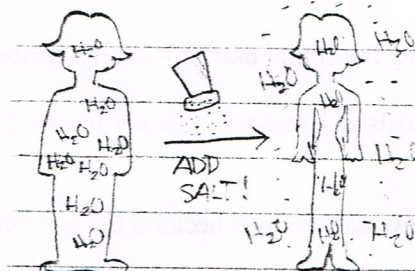 H₂O
H₂O
H₂O
H₂O
H₂O
H₂O
H₂O
H₂O
ADD
SALT!
H₂O
H₂O
H₂O
H₂O
H₂O
H₂O
H₂O
H₂O
H₂O
H₂O